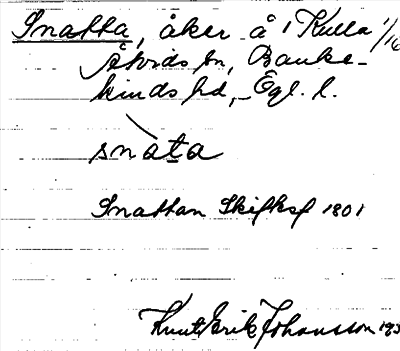 Snatta, åker å 1/16 Kulla
Åtvids sn, Bankekinds
hd, Ögl. l.
snata
Snattan Skifksf 1801
Knut Erik Johansson 193